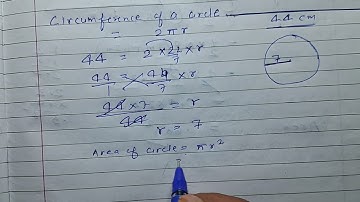 Circumference of a circle — 44 cm
= 2πr
44 = 2 × 22/7 × r
44 = 44/7 × r
44 × 7 / 44 = r
r = 7
7
Area of circle = πr²